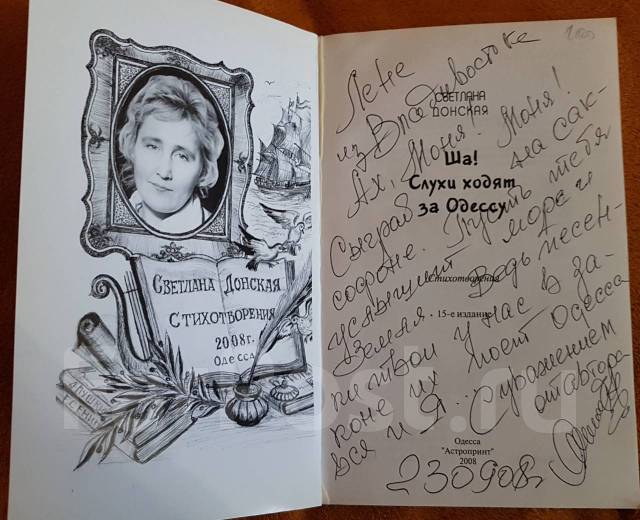 СВЕТЛАНА ДОНСКАЯ
СТИХОТВОРЕНИЯ
2008г.
ОДЕССА
ЕСЕНИН
СВЕТЛАНА
ДОНСКАЯ
Ша!
Слухи ходят
за Одессу
Стихотворения
15-е издание
Одесса
"Астропринт"
2008
Лене
из Владивостока
Ах, Моня! Моня!
Сыграв на сак-
софоне. Пусть тебя
услышит море и
земля. Ведь песен-
ки твои у нас в за-
коне их поёт Одесса
вся и я... с уважением
от автора
230908г.